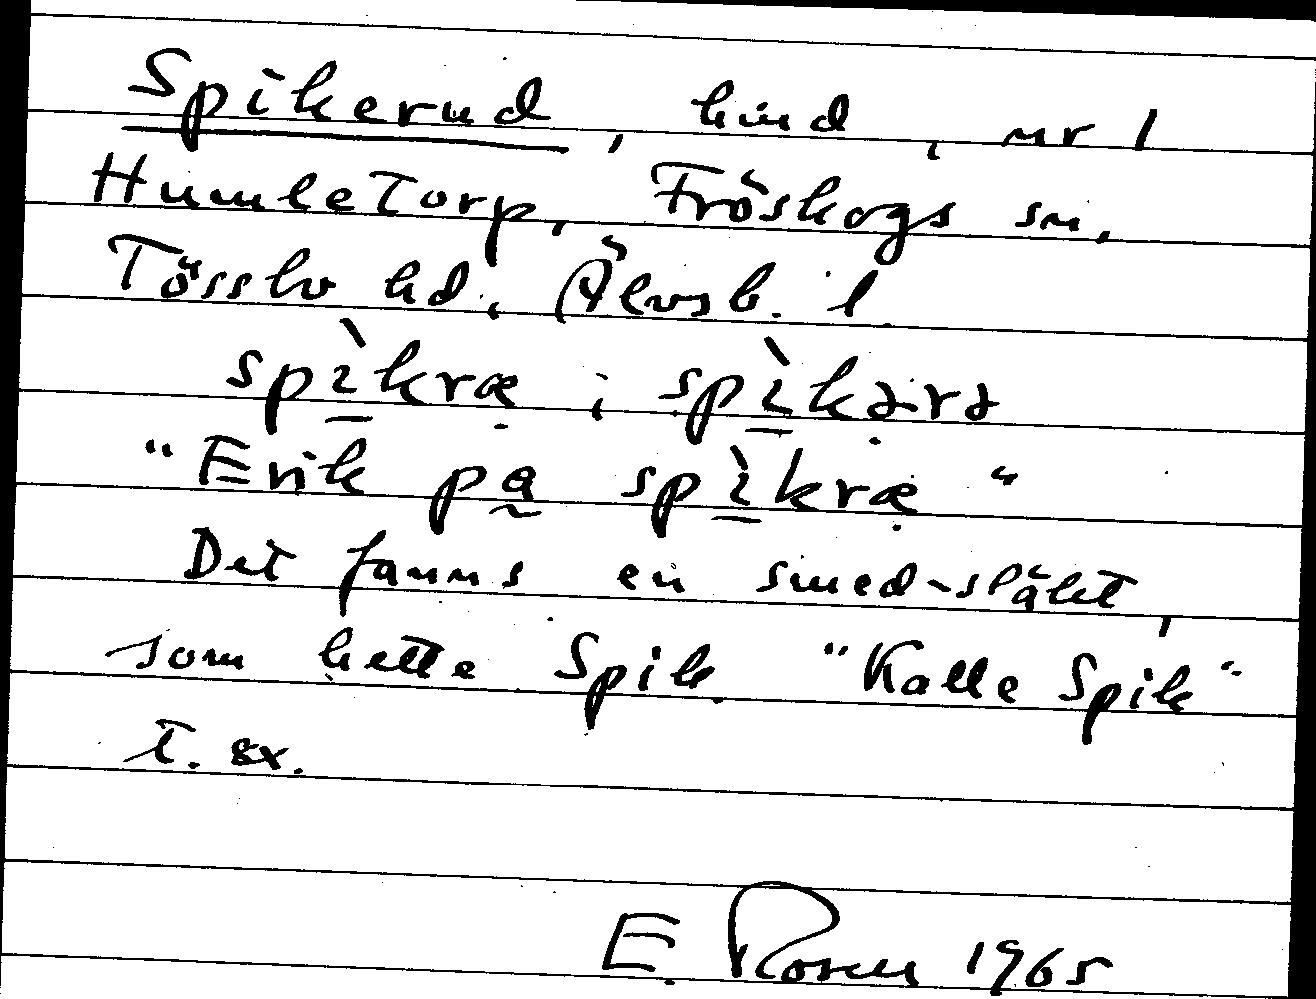 Spikerud, hmd, nr 1
Humletorp, Fröskogs sn,
Tössbo hd, Älvsb. l.
spìkræ ; spìkərə
"Erik pa spìkræ"
Det fanns en smed-släkt,
som hette Spik. "Kalle Spik"
t. ex.
E. Rosen 1965